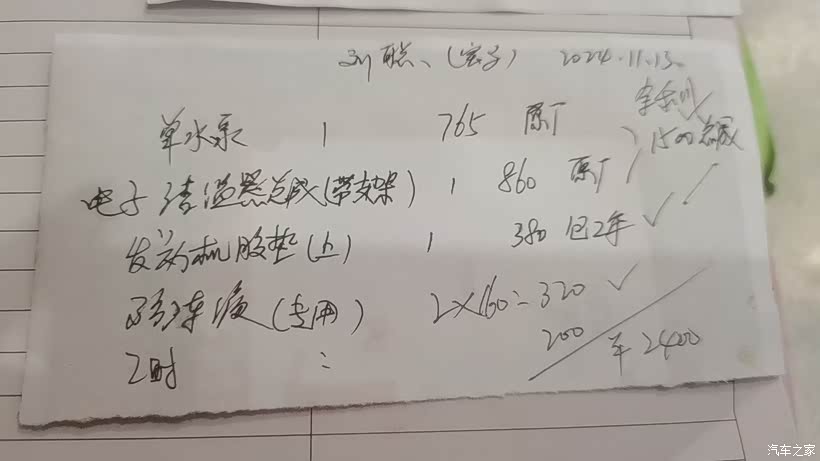 2024.11.13
单水泵 1 765 原厂
1500总成
电子节温器总成(带支架) 1 860 原厂
发动机胶垫(上) 1 380 包2年 ✓
防冻液(专用) 2×160=320 ✓
200 羊2400
工时:
汽车之家